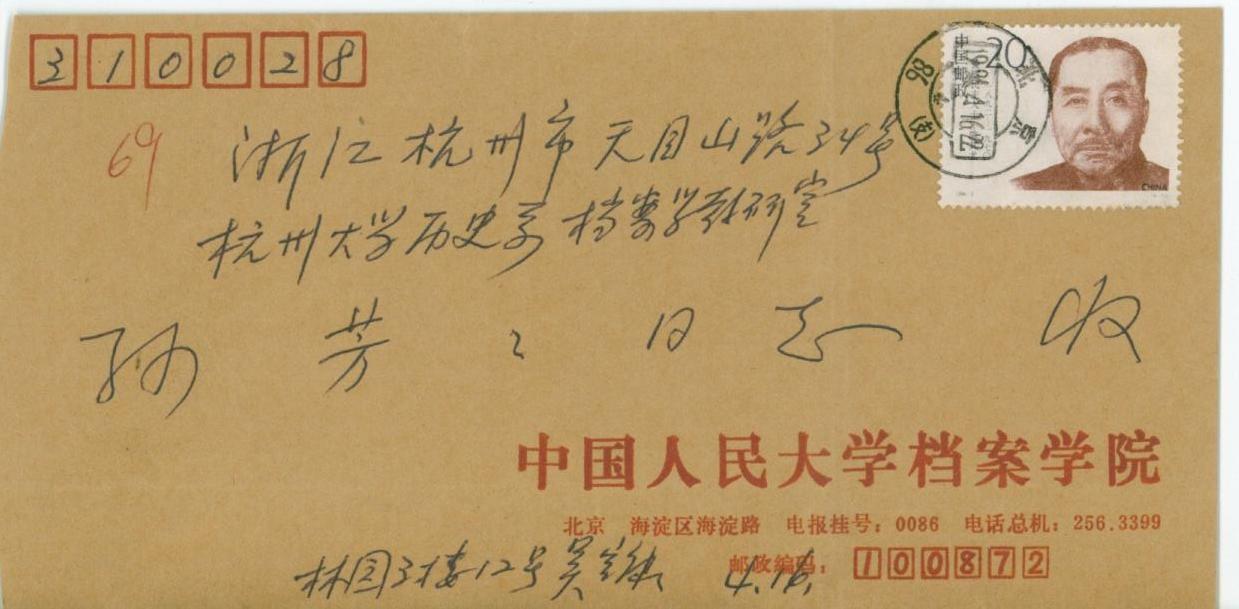 310028
中国邮政 20
1994.4.16.22
北京
CHINA
69
浙江杭州市天目山路34号
杭州大学历史系档案学教研室
孙芳〻同志 收
中国人民大学档案学院
北京 海淀区海淀路 电报挂号：0086 电话总机：256.3399
邮政编码：100872
林园3楼12号吴宝康 4.16.